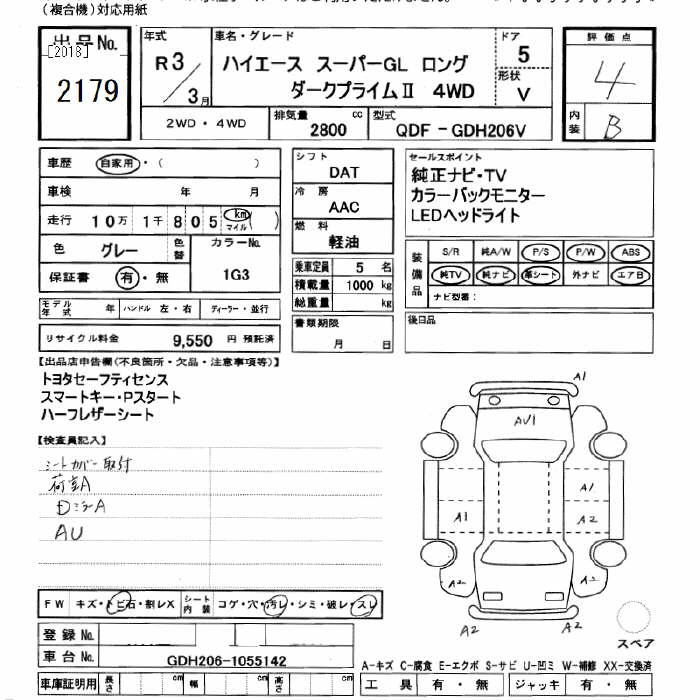 (複合機)対応用紙
出品No.
[2018]
2179
年式
R3/3月
車名・グレード
ハイエース スーパーGL ロング
ダークプライムⅡ 4WD
ドア
5
形状
V
評価点
4
内装
B
2WD・4WD
排気量
2800 cc
型式
QDF-GDH206V
車歴 自家用・( )
車検 年 月
走行 10万 1千 805 km マイル ( )
色 グレー 色替 カラーNo.
1G3
保証書 有・無
モデル年式 年 ハンドル 左・右 ディーラー・並行
リサイクル料金 9,550 円 預託済
シフト
DAT
冷房
AAC
燃料
軽油
乗車定員 5 名
積載量 1000 kg
総重量 kg
書類期限
月 日
セールスポイント
純正ナビ・TV
カラーバックモニター
LEDヘッドライト
装備品
S/R 純A/W P/S P/W ABS
純TV 純ナビ 革シート 外ナビ エアB
ナビ型番:
後日品
【出品店申告欄(不良箇所・欠品・注意事項等)】
トヨタセーフティセンス
スマートキー・Pスタート
ハーフレザーシート
【検査員記入】
シートカバー取付
荷室A
DミラーA
AU
A1
AU1
A1
A1
A2
A2
A2
A2
A2
スペア
FW キズ・トビ石・割レX シート内装 コゲ・穴・汚レ・シミ・破レ・スレ
登録No.
車台No. GDH206-1055142
車庫証明用 長さ cm 幅 cm 高さ cm
A-キズ C-腐食 E-エクボ S-サビ U-凹ミ W-補修 XX-交換済
工具 有・無 ジャッキ 有・無